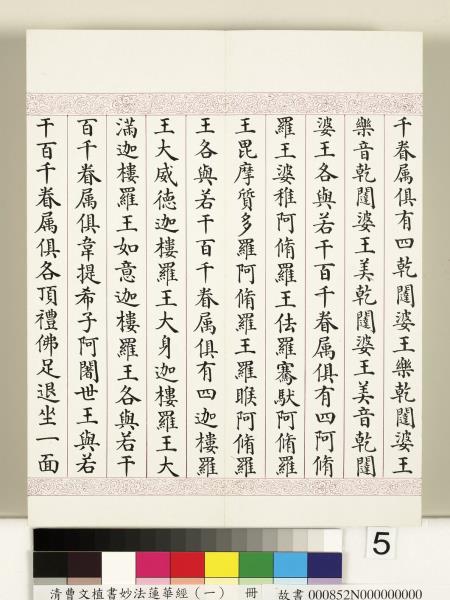 千眷属俱有四乾闥婆王樂乾闥婆王
樂音乾闥婆王美乾闥婆王美音乾闥
婆王各與若干百千眷属俱有四阿脩
羅王婆稚阿脩羅王佉羅騫馱阿脩羅
王毘摩質多羅阿脩羅王羅睺阿脩羅
王各與若干百千眷属俱有四迦樓羅
王大威德迦樓羅王大身迦樓羅王大
滿迦樓羅王如意迦樓羅王各與若干
百千眷属俱韋提希子阿闍世王與若
干百千眷属俱各頂禮佛足退坐一面
5
清曹文植書妙法蓮華經(一) 冊 故書000852N000000000